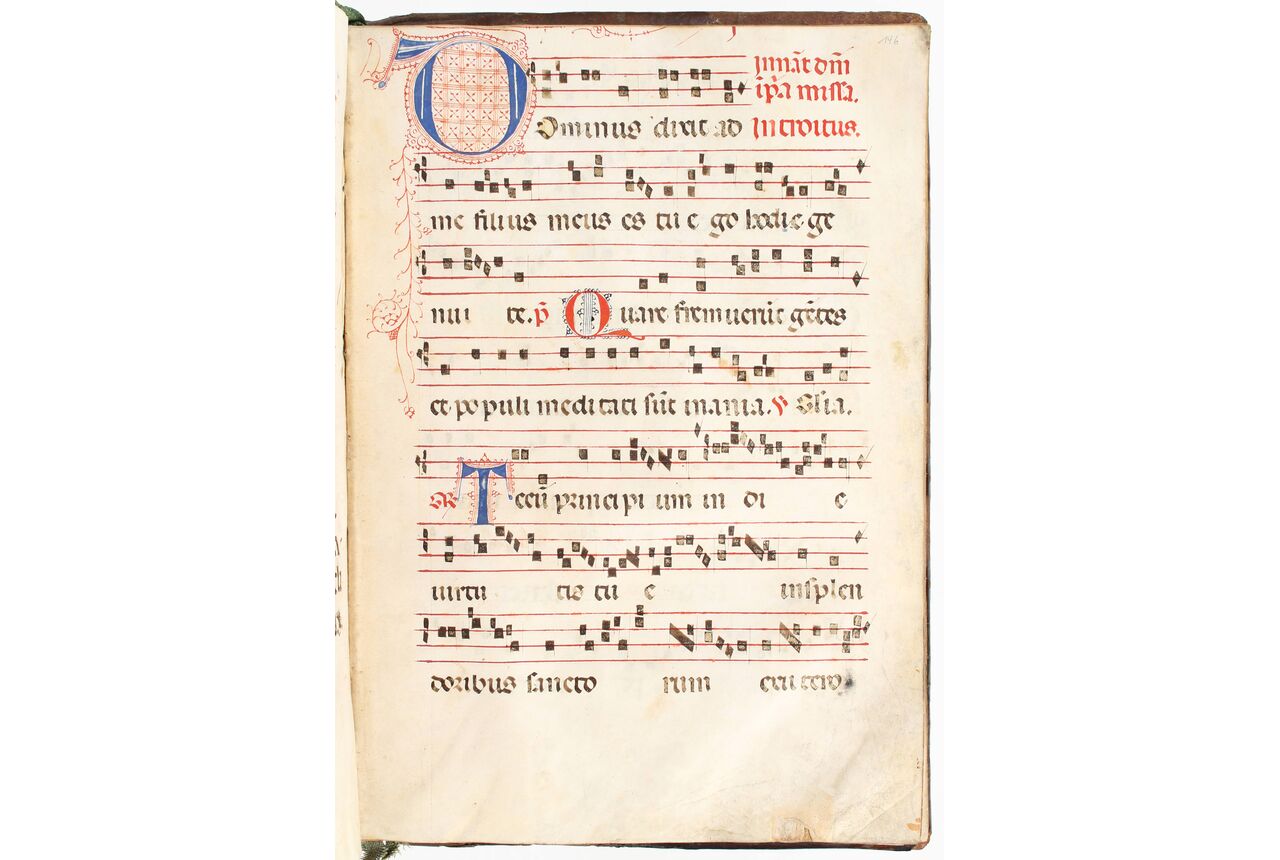 146
In nat̄ dn̄i
i p̄a missa.
Dominus dixit ad Introitus.
me filius meus es tu e go hodie ge
nui te. p̄ Quare fremuerūt gētes
et populi meditati sūt inania. V Gl̄ia.
GR Tecū principi um in di e
uirtu tis tu e insplen
doribus sancto rum exutero